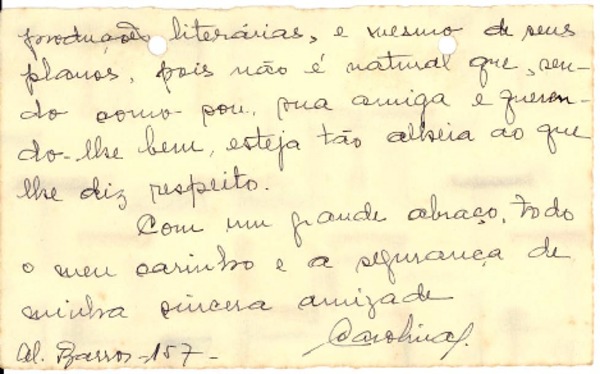 produções literárias, e mesmo de seus
planos, pois não é natural que, sen-
do como sou, sua amiga e queren-
do-lhe bem, esteja tão alheia ao que
lhe diz respeito.
Com um grande abraço, todo
o meu carinho e a segurança de
minha sincera amizade
Carolina
Al. Barros - 157 -